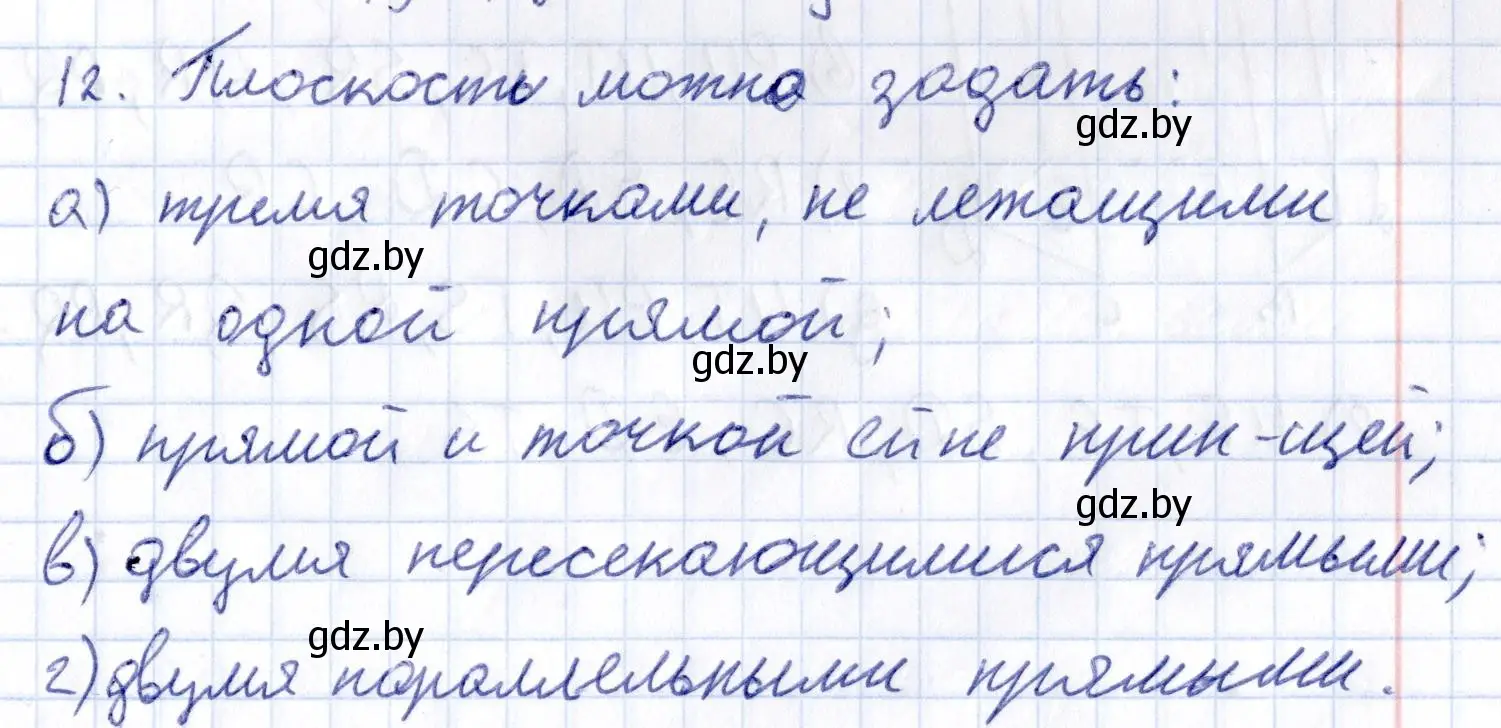 12. Плоскость можно задать:
gdz.by
а) тремя точками, не лежащими
gdz.by
на одной прямой;
gdz.by
б) прямой и точкой ей не прин-щей;
gdz.by
в) двумя пересекающимися прямыми;
gdz.by
г) двумя параллельными прямыми.